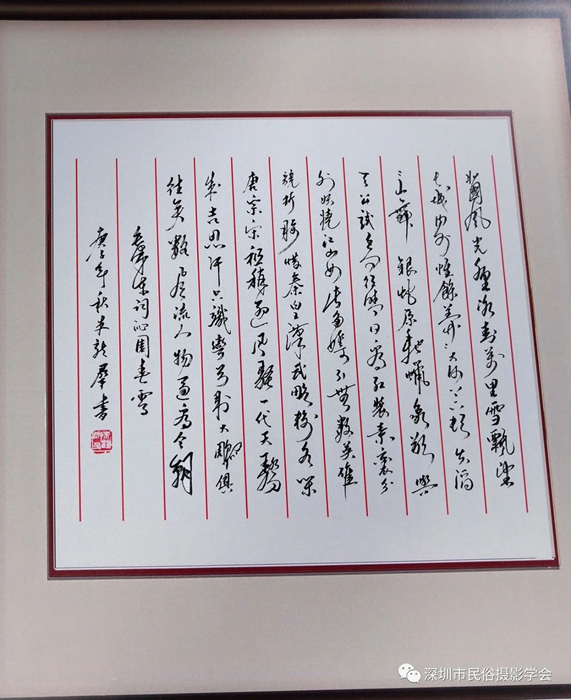 北國風光千里冰封萬里雪飄望
長城內外惟餘莽莽大河上下頓失滔
滔山舞銀蛇原馳蠟象欲與
天公試比高須晴日看紅裝素裹分
外妖嬈江山如此多嬌引無數英雄
競折腰惜秦皇漢武略輸文采
唐宗宋祖稍遜風騷一代天驕
成吉思汗只識彎弓射大雕俱
往矣數風流人物還看今朝
毛澤東詞沁園春雪
庚子年秋朱龍書
深圳市民俗摄影学会